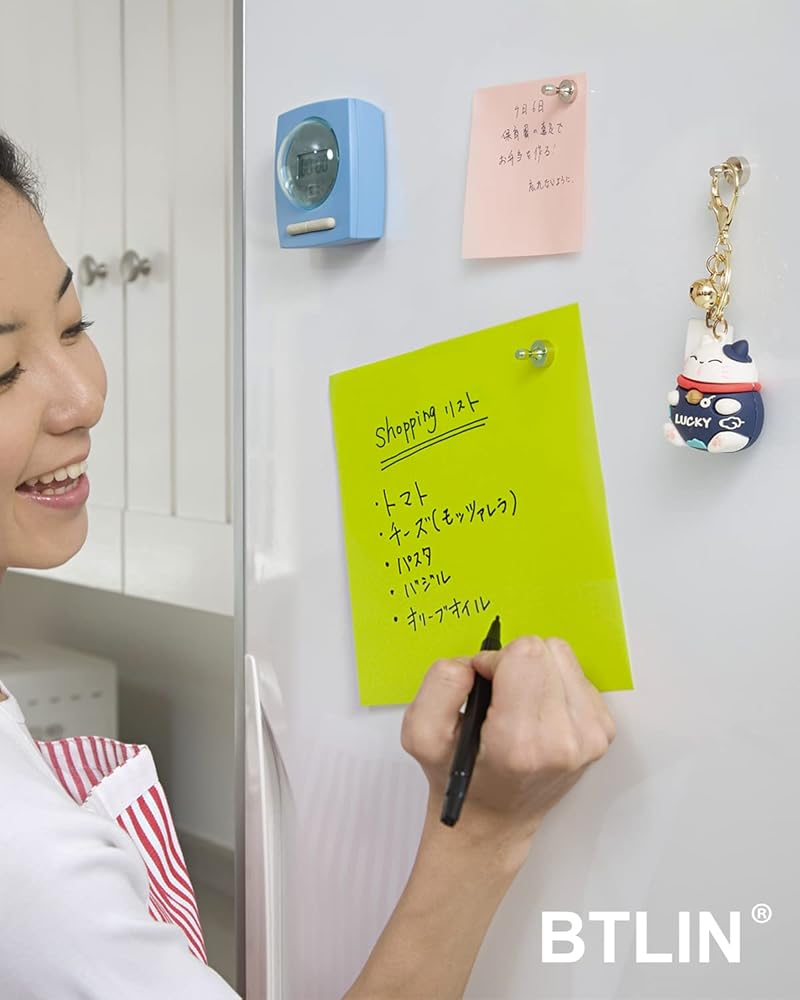 9月6日
保育園の遠足で
お弁当を作る!
忘れないように
Shopping リスト
・トマト
・チーズ(モッツァレラ)
・パスタ
・バジル
・オリーブオイル
LUCKY
BTLIN®